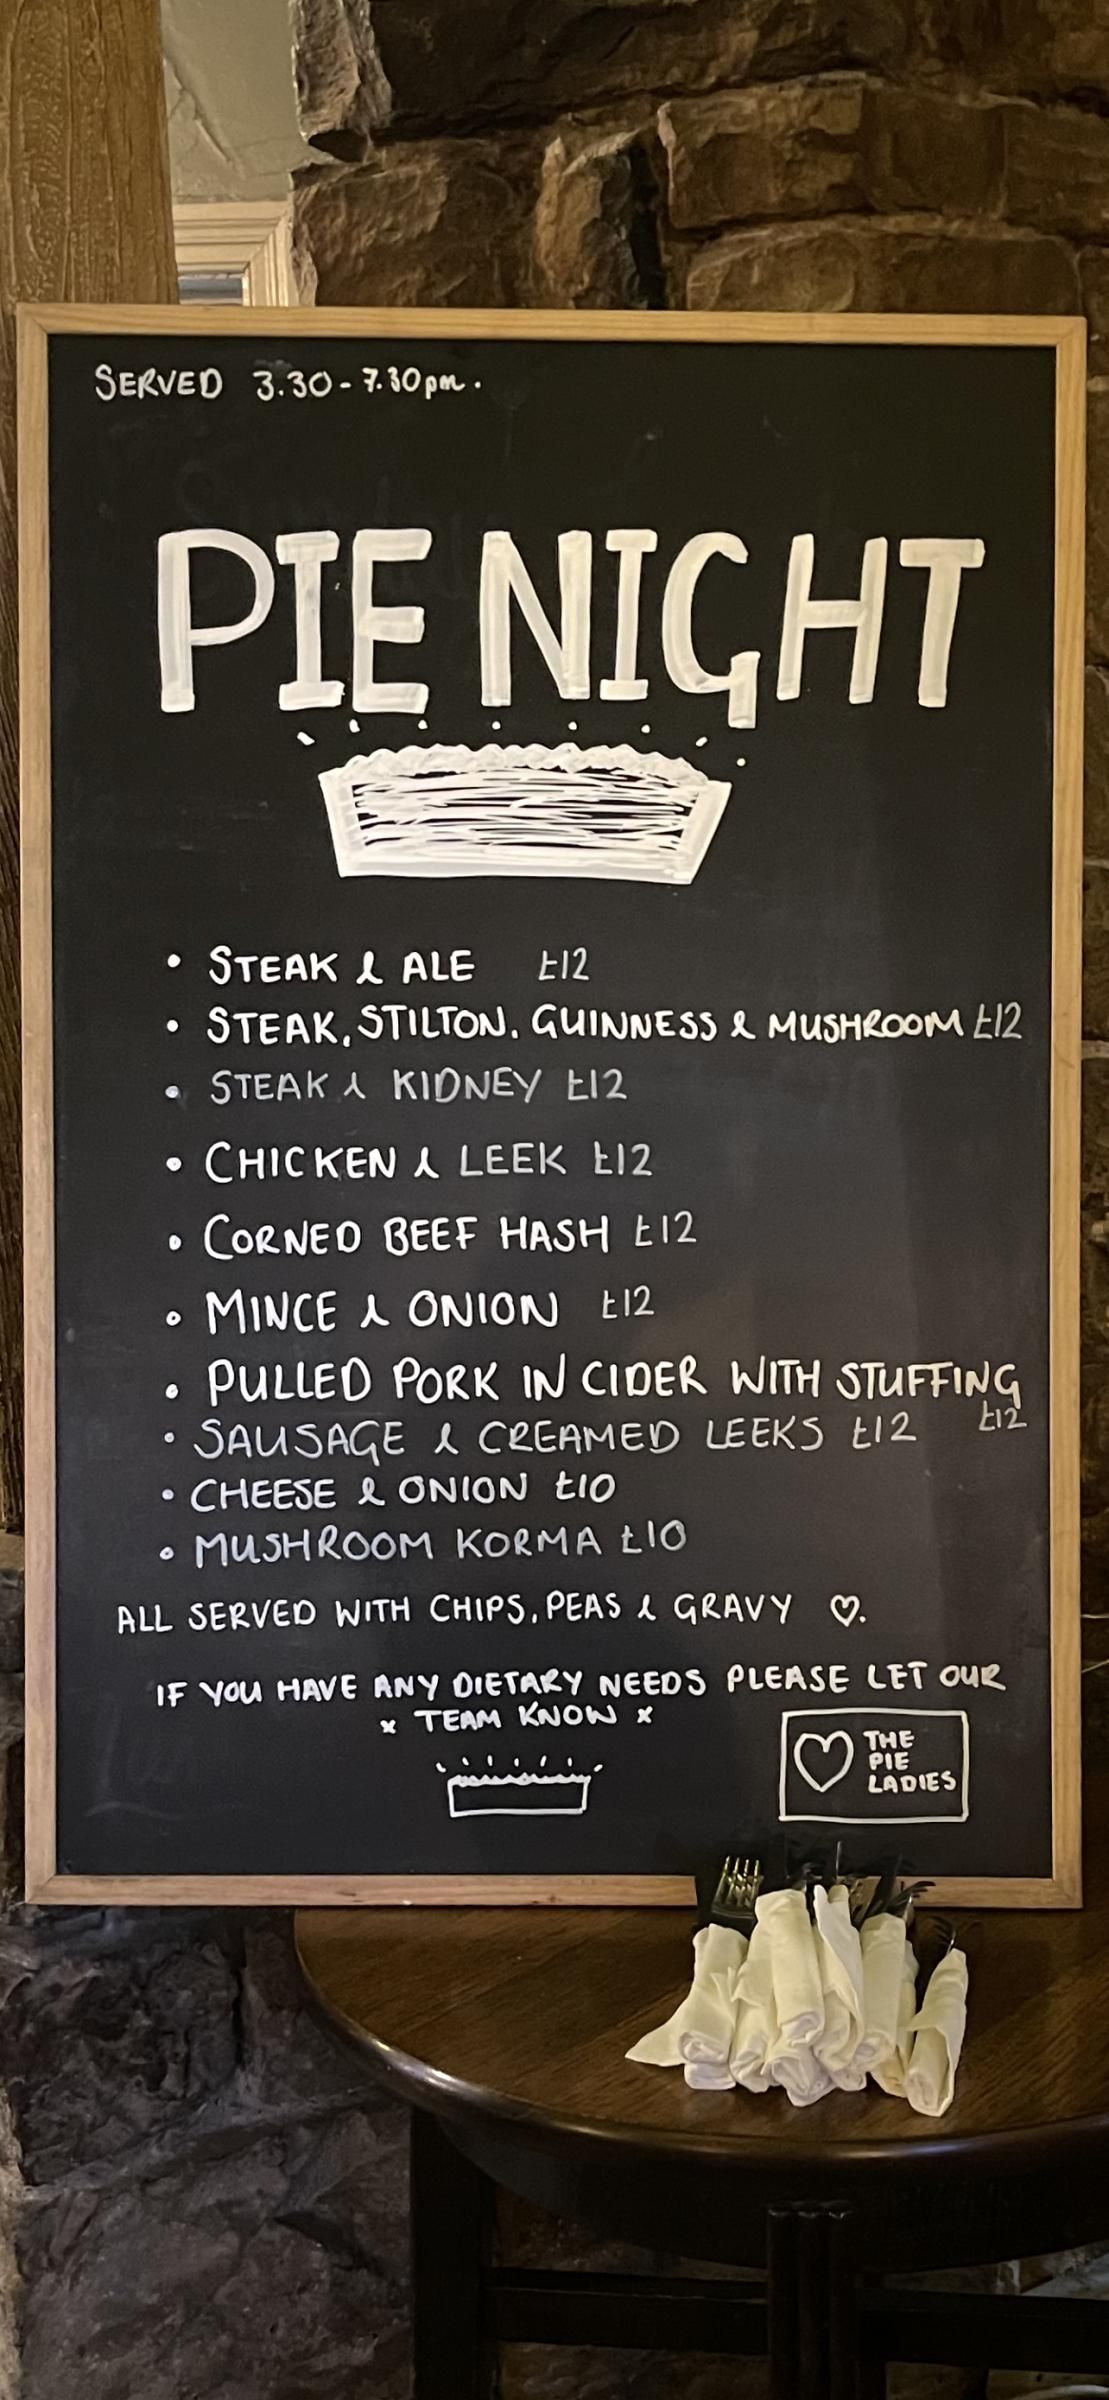 SERVED 3.30 - 7.30pm.
PIE NIGHT
• STEAK & ALE £12
• STEAK, STILTON, GUINNESS & MUSHROOM £12
• STEAK & KIDNEY £12
• CHICKEN & LEEK £12
• CORNED BEEF HASH £12
• MINCE & ONION £12
• PULLED PORK IN CIDER WITH STUFFING
£12
• SAUSAGE & CREAMED LEEKS £12
• CHEESE & ONION £10
• MUSHROOM KORMA £10
ALL SERVED WITH CHIPS, PEAS & GRAVY ♡.
IF YOU HAVE ANY DIETARY NEEDS PLEASE LET OUR
x TEAM KNOW x
♡ THE
PIE
LADIES